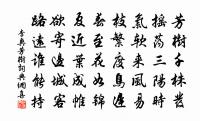 芳樹千株發
搖蕩三陽時
氣軟來風易
枝繁度鳥遲
春至花如錦
夏近葉成帷
欲寄邊城客
路遠誰能持
李爽芳樹詞典網書